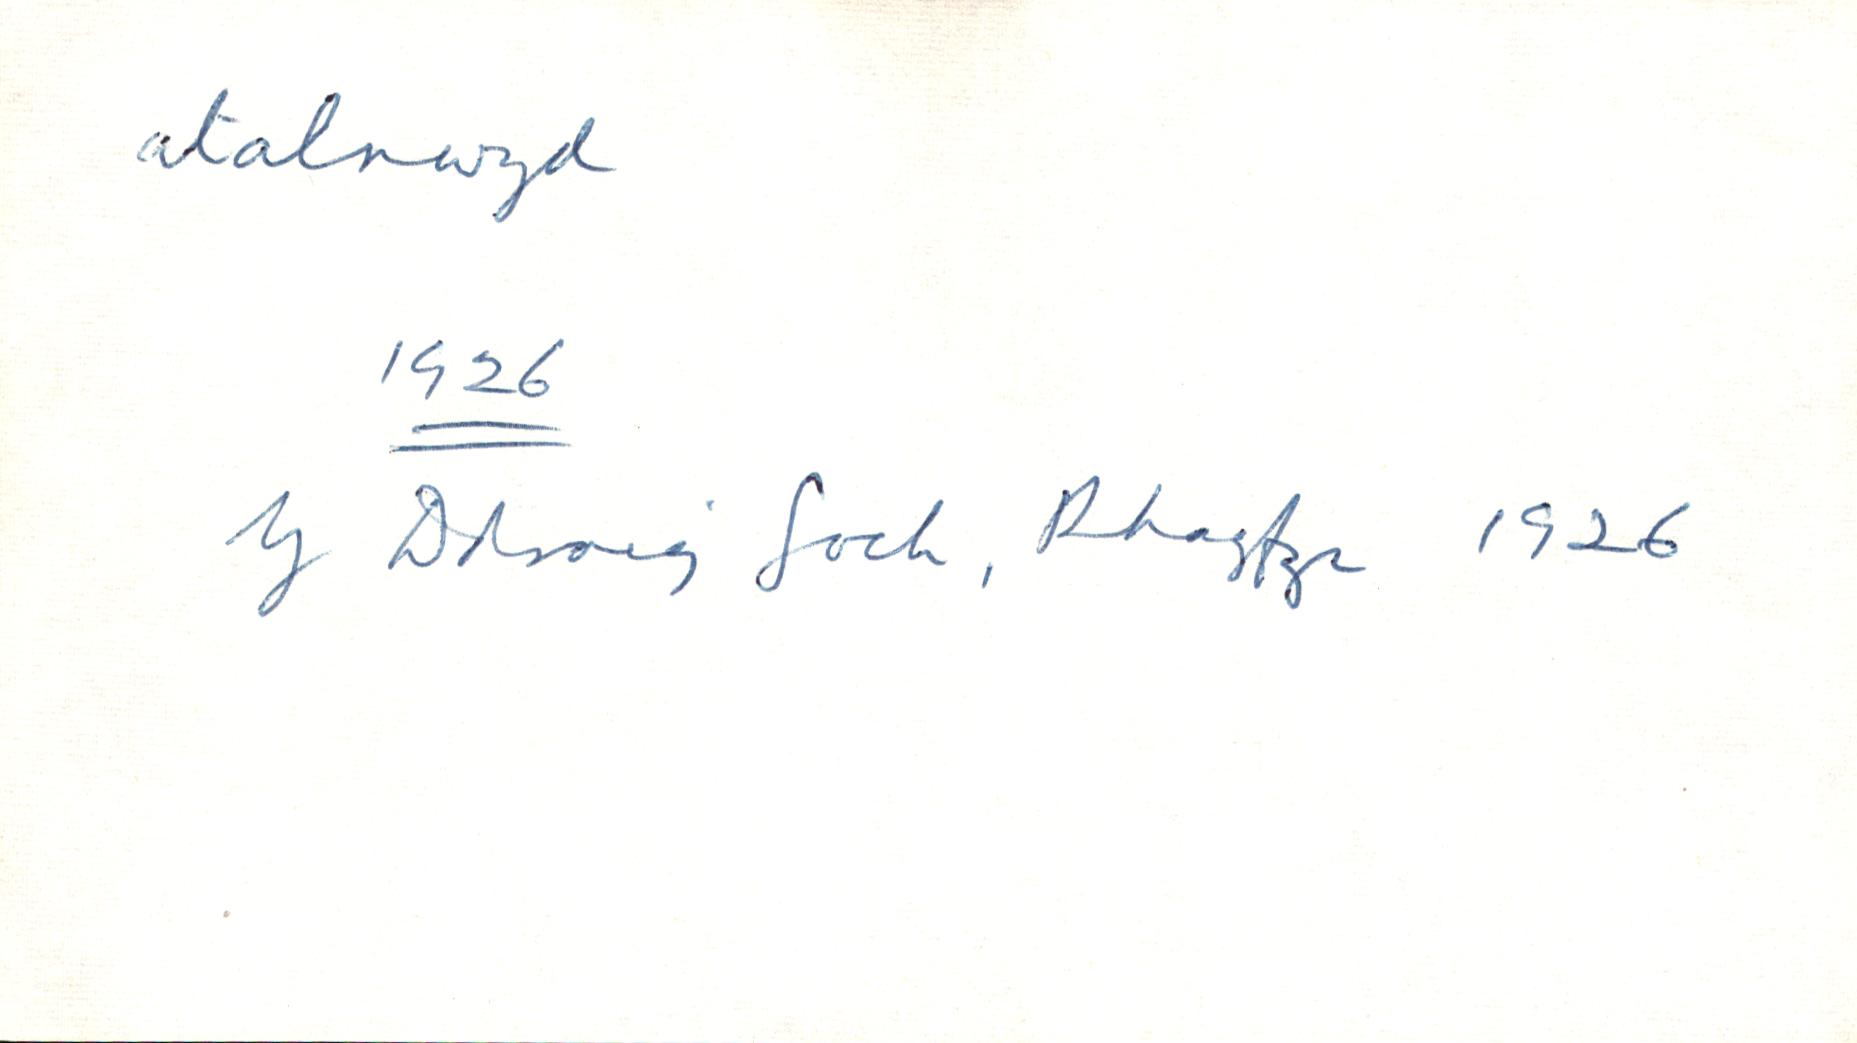 atalnwyd
1926
Y Ddraig Goch, Rhagfyr 1926